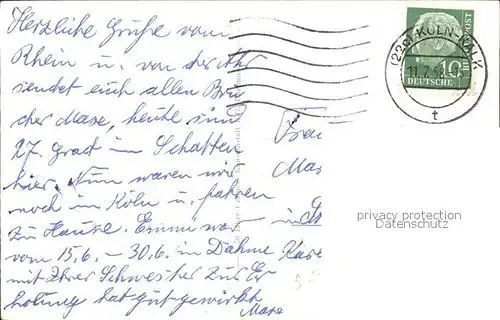 Herzliche Grüße vom
Rhein u. von der Ahr
sendet euch allen Bru
der Maxe, heute sind
27. Grad im Schatten
hier. Nun waren wir
noch im Köln u. fahren
zu Hause. Emmi war
vom 15.6. – 30.6. in Dahme
mit Ihrer Schwester zur Er
holung hat gut gewirkt
Maxe
Frau
(22c) KÖLN-KALK
11.7.5
t
10
DEUTSCHE
POST
privacy protection
Datenschutz